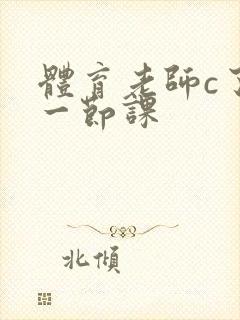 體育老師c了
一節課
北傾